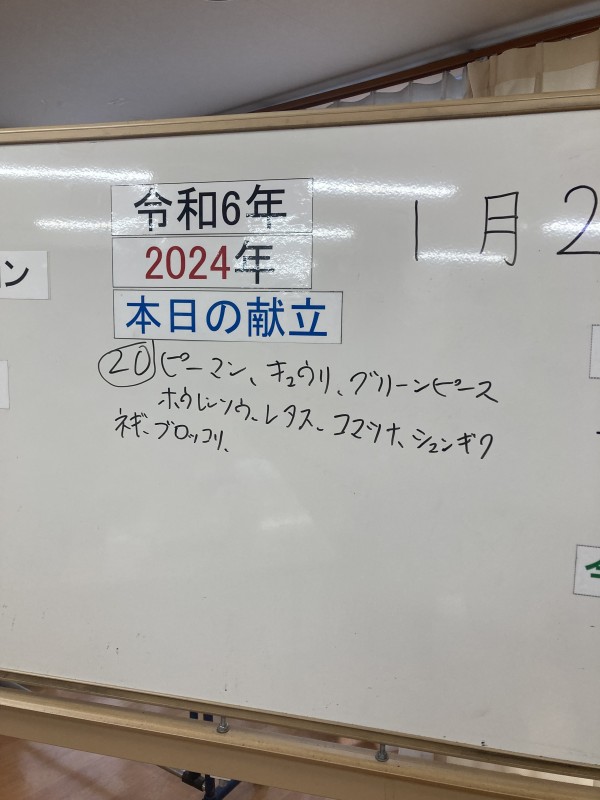 令和6年
2024年
本日の献立
1月2
⑳ピーマン、キュウリ、グリーンピース
ホウレンソウ、レタス、コマツナ、シュンギク
ネギ、ブロッコリ、
ン